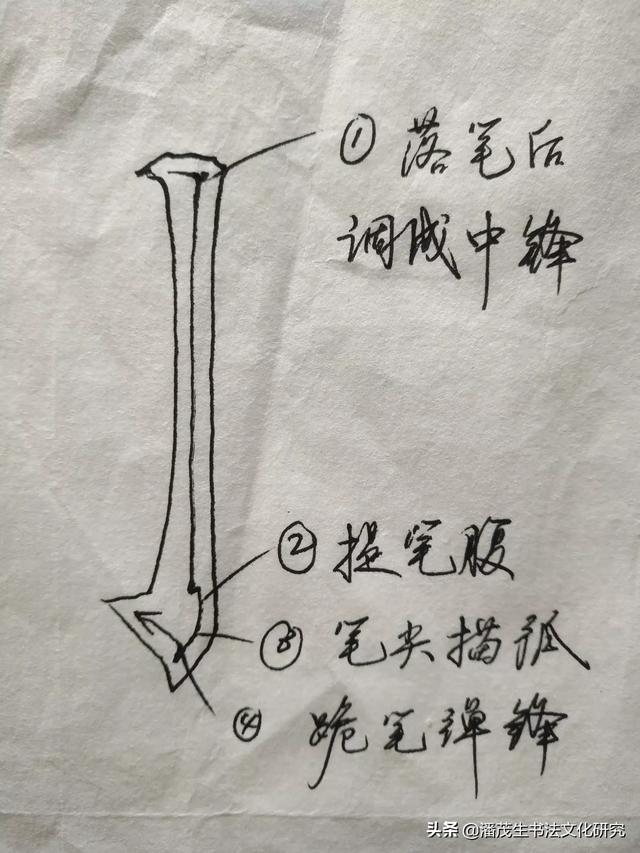 ① 落笔后
调成中锋
② 提笔腹
③ 笔尖描弧
④ 跪笔弹锋
头条 @潘茂生书法文化研究